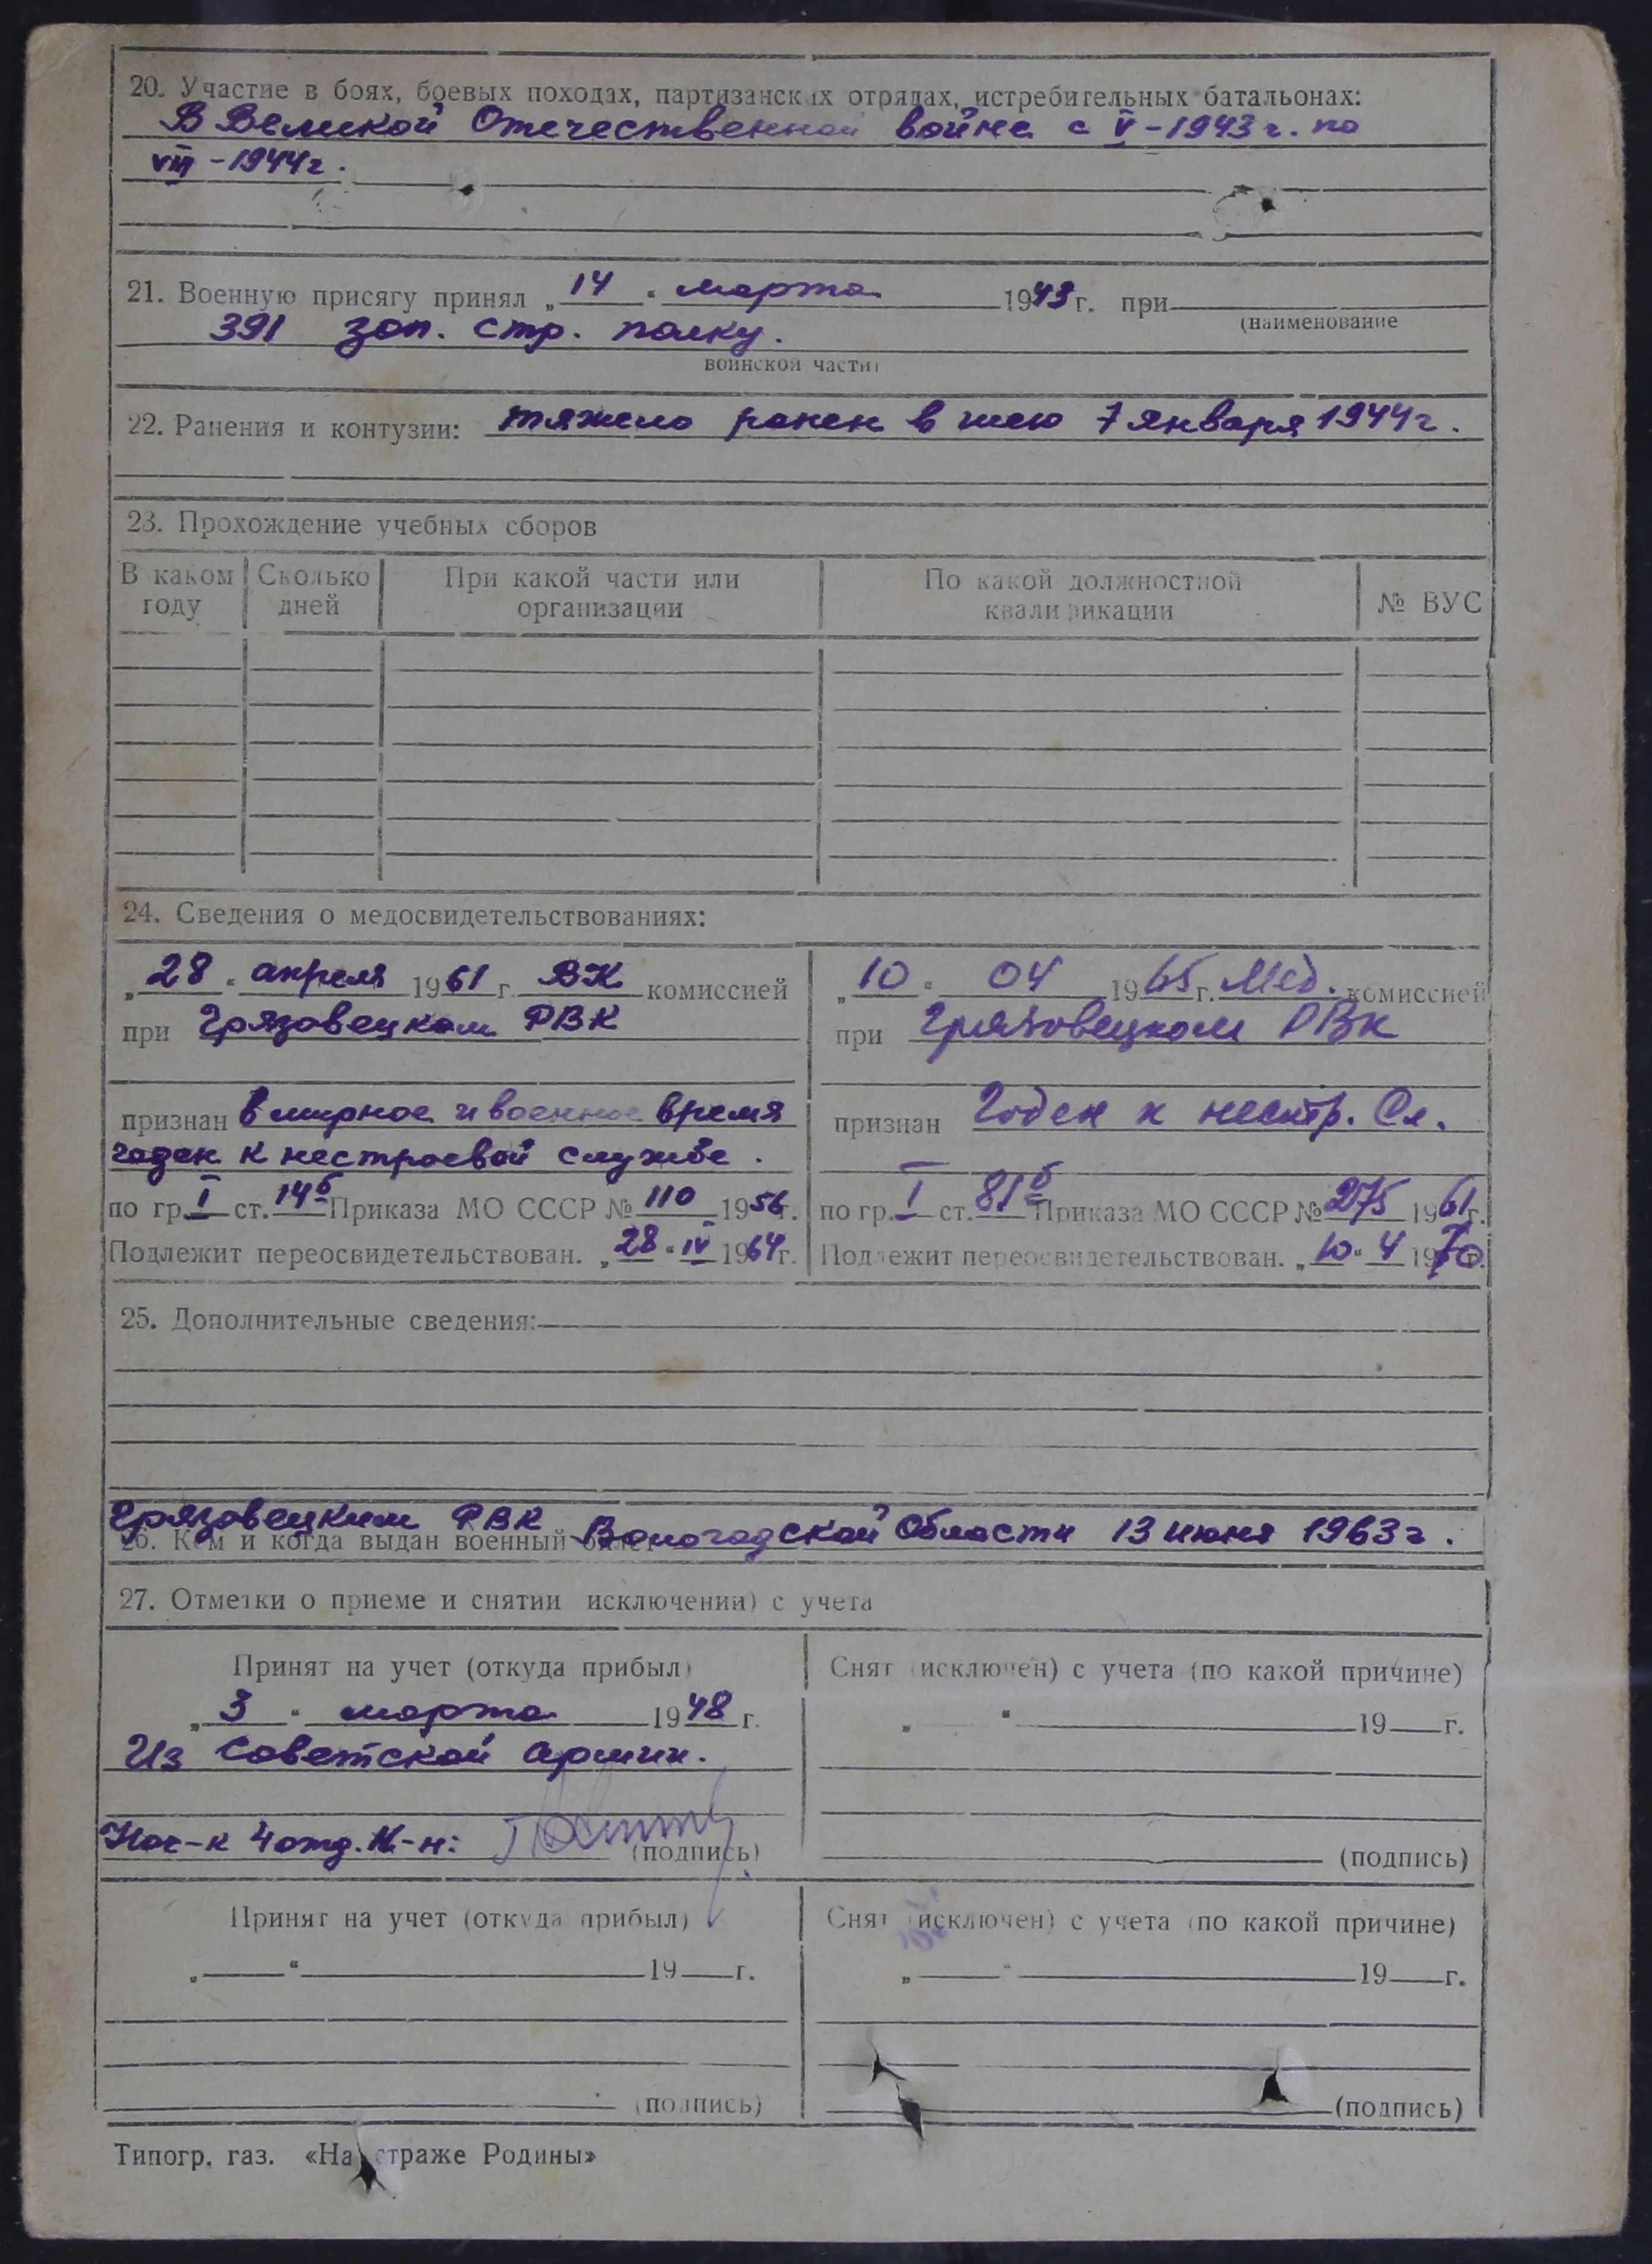 20. Участие в боях, боевых походах, партизанских отрядах, истребительных батальонах:
В Великой Отечественной войне с V - 1943 г. по
VIII - 1944 г.
21. Военную присягу принял „14“ марта 1943 г. при
(наименование
391 зап. стр. полку.
воинской части)
22. Ранения и контузии: тяжело ранен в шею 7 января 1944 г.
23. Прохождение учебных сборов
В каком году Сколько дней При какой части или организации По какой должностной квалификации № ВУС
24. Сведения о медосвидетельствованиях:
„28“ апреля 1961 г. ВК комиссией
при Грязовецком РВК
признан в мирное и военное время
годен к нестроевой службе.
по гр. I ст. 14б Приказа МО СССР № 110 1956 г.
Подлежит переосвидетельствован. „28“ IV 1964 г.
„10“ 04 1965 г. Мед. комиссией
при Грязовецком РВК
признан Годен к нестр. Сл.
по гр. I ст. 81б Приказа МО СССР № 275 1961 г.
Подлежит переосвидетельствован. „10“ 4 1970 г.
25. Дополнительные сведения:
Грязовецким РВК Вологодской области 13 июня 1963 г.
26. Кем и когда выдан военный билет
27. Отметки о приеме и снятии исключении) с учета
Принят на учет (откуда прибыл)
„3“ марта 1948 г.
Из Советской Армии.
Нач-к 4 отд. М-н:
(подпись)
Снят (исключен) с учета (по какой причине)
„ “ 19 г.
(подпись)
Принят на учет (откуда прибыл)
„ “ 19 г.
(подпись)
Снят (исключен) с учета (по какой причине)
„ “ 19 г.
(подпись)
Типогр. газ. «На страже Родины»